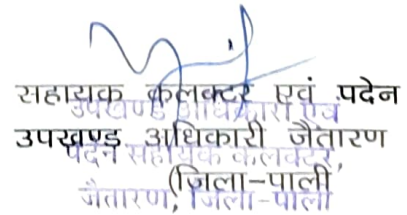 सहायक कलक्टर एवं पदेन
उपखण्ड अधिकारी एवं
उपखण्ड अधिकारी जैतारण
पदेन सहायक कलक्टर,
(जिला-पाली
जैतारण, जिला-पाली